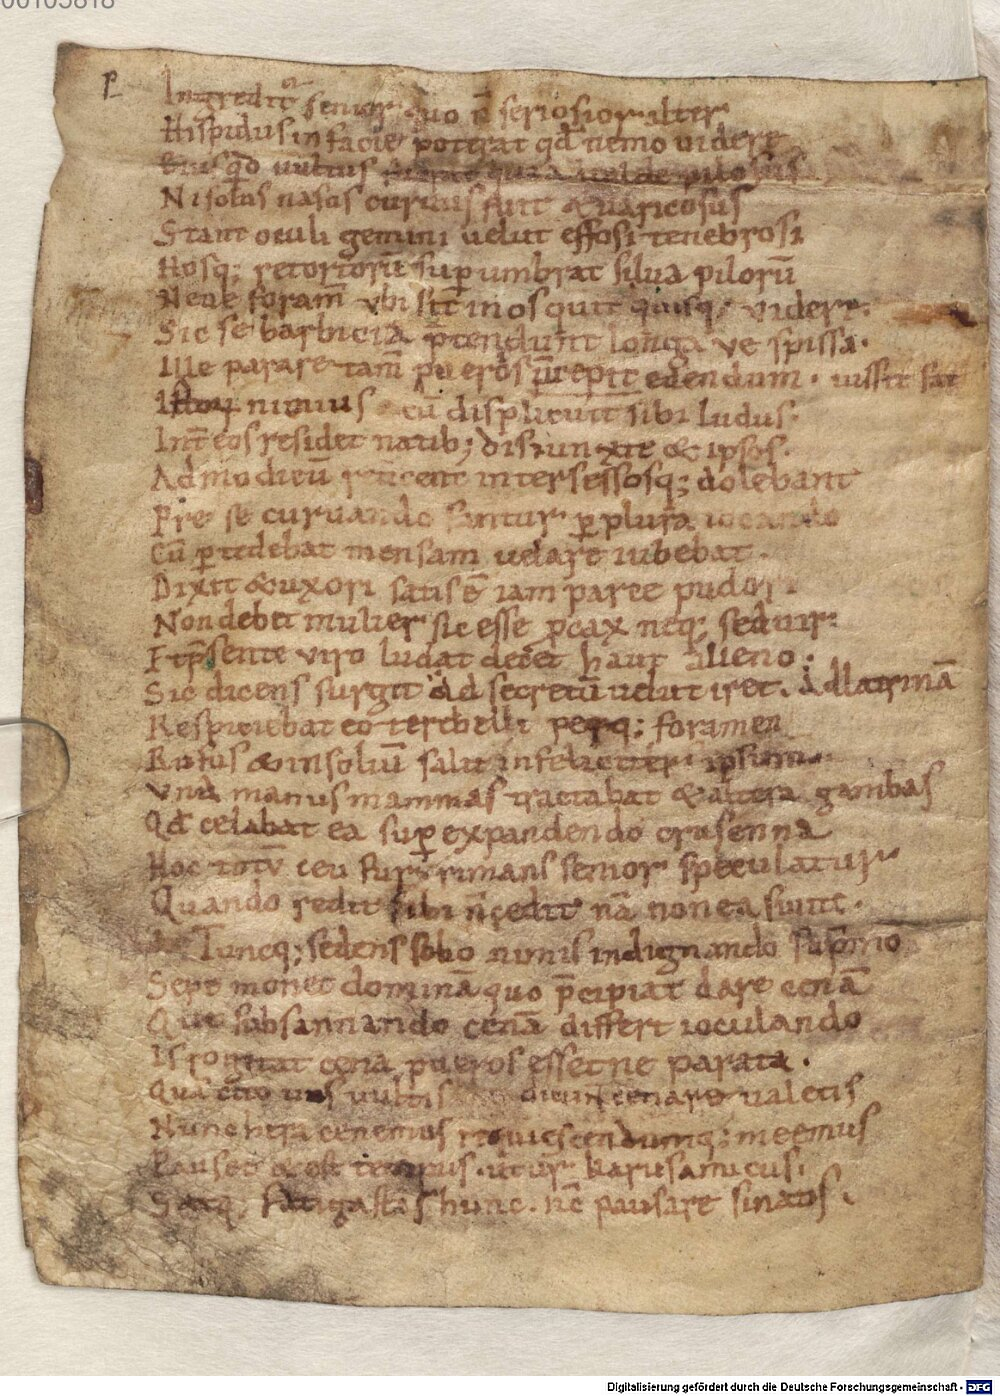 00105818
Ingredit᷑ senior quo n̄ seriosior alter
Hispidus in facie poterat qđ nemo videre
Eius qđ vultus fuerat quia valde pilosus
Ni solus nasus curuus fuit & uaricosus
Stant oculi gemini uelut effosi tenebrosi
Hosq; retortorū sup umbrat silua pilorū
Neue foram̄ vbi sit in os quit quisq; videre.
Sic se barbicia p̄tendunt longa ve spissa.
Ille parare tam̄ pueros p̄cepit edendum. iussit sat
nimius cū displicuit sibi ludus.
Int̄ eos residet natib; disiunxit & ipsos.
Ad modicū reticent intersessosq; dolebant
Pre se curuando fantur p plura iocando
Cū ptedebat mensam uelare iubebat.
Dixit & uxori satis ē iam parce pudori
Non debet mulier sic esse pcax neq; sed uir
Et p̄sente viro ludat decet haut alieno.
Sic dicens surgit ad secretū uelut iret. Ad latrinā
Respiciebat eo terebelli perq; foramen
Rufus & insoliū salit infeliciter ipsum.
Vna manus mammas tractabat & altera gambas
Qđ celabat ea sup expandendo crusenna
Hoc totū ceu fur rimans senior speculatur
Quando redit sibi n̄ cedit nā non ea sunt.
Tuncq; sedens solio nimis indignando suspirio
Sepe monet dominā quo p̄cipiat dare cenā
Que subsannando cenā differt ioculando
Is rogitat cena pueros essetne parata.
Quā cito uis vultis dicunt cenare ualetis
Nunc hera cenemus requiescendumq; meemus
Pauset & est tempus. karus amicus.
Satq; fatigastis hunc. nc̄ pausare sinatis.
Digitalisierung gefördert durch die Deutsche Forschungsgemeinschaft - DFG